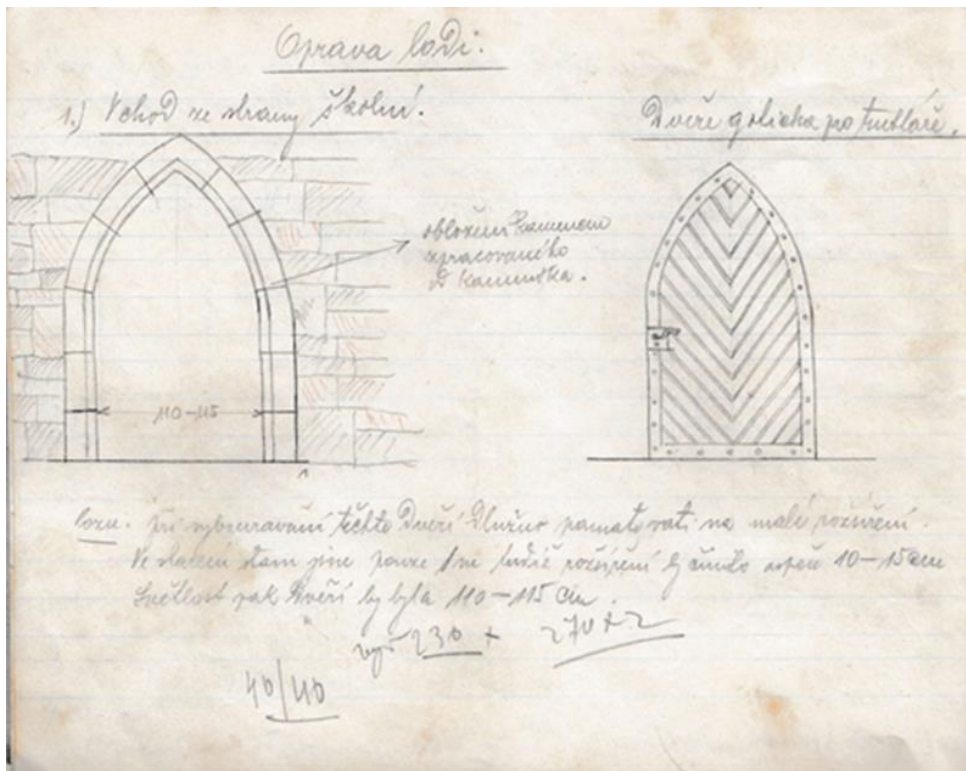 Oprava lodi.
1.) Vchod ze strany školní.
Dveře goticha po truhláře.
obložení kamenem
zpracovaného
kameníka.
110-115
Pozn. Při vybourávání těchto dveří dlužno pamatovati na malé rozšíření.
Ve starém jsou pouze rozšíření by činilo aspoň 10-15 cm
Světlost pak dveří by byla 110-115 cm.
230 + 270
40/40